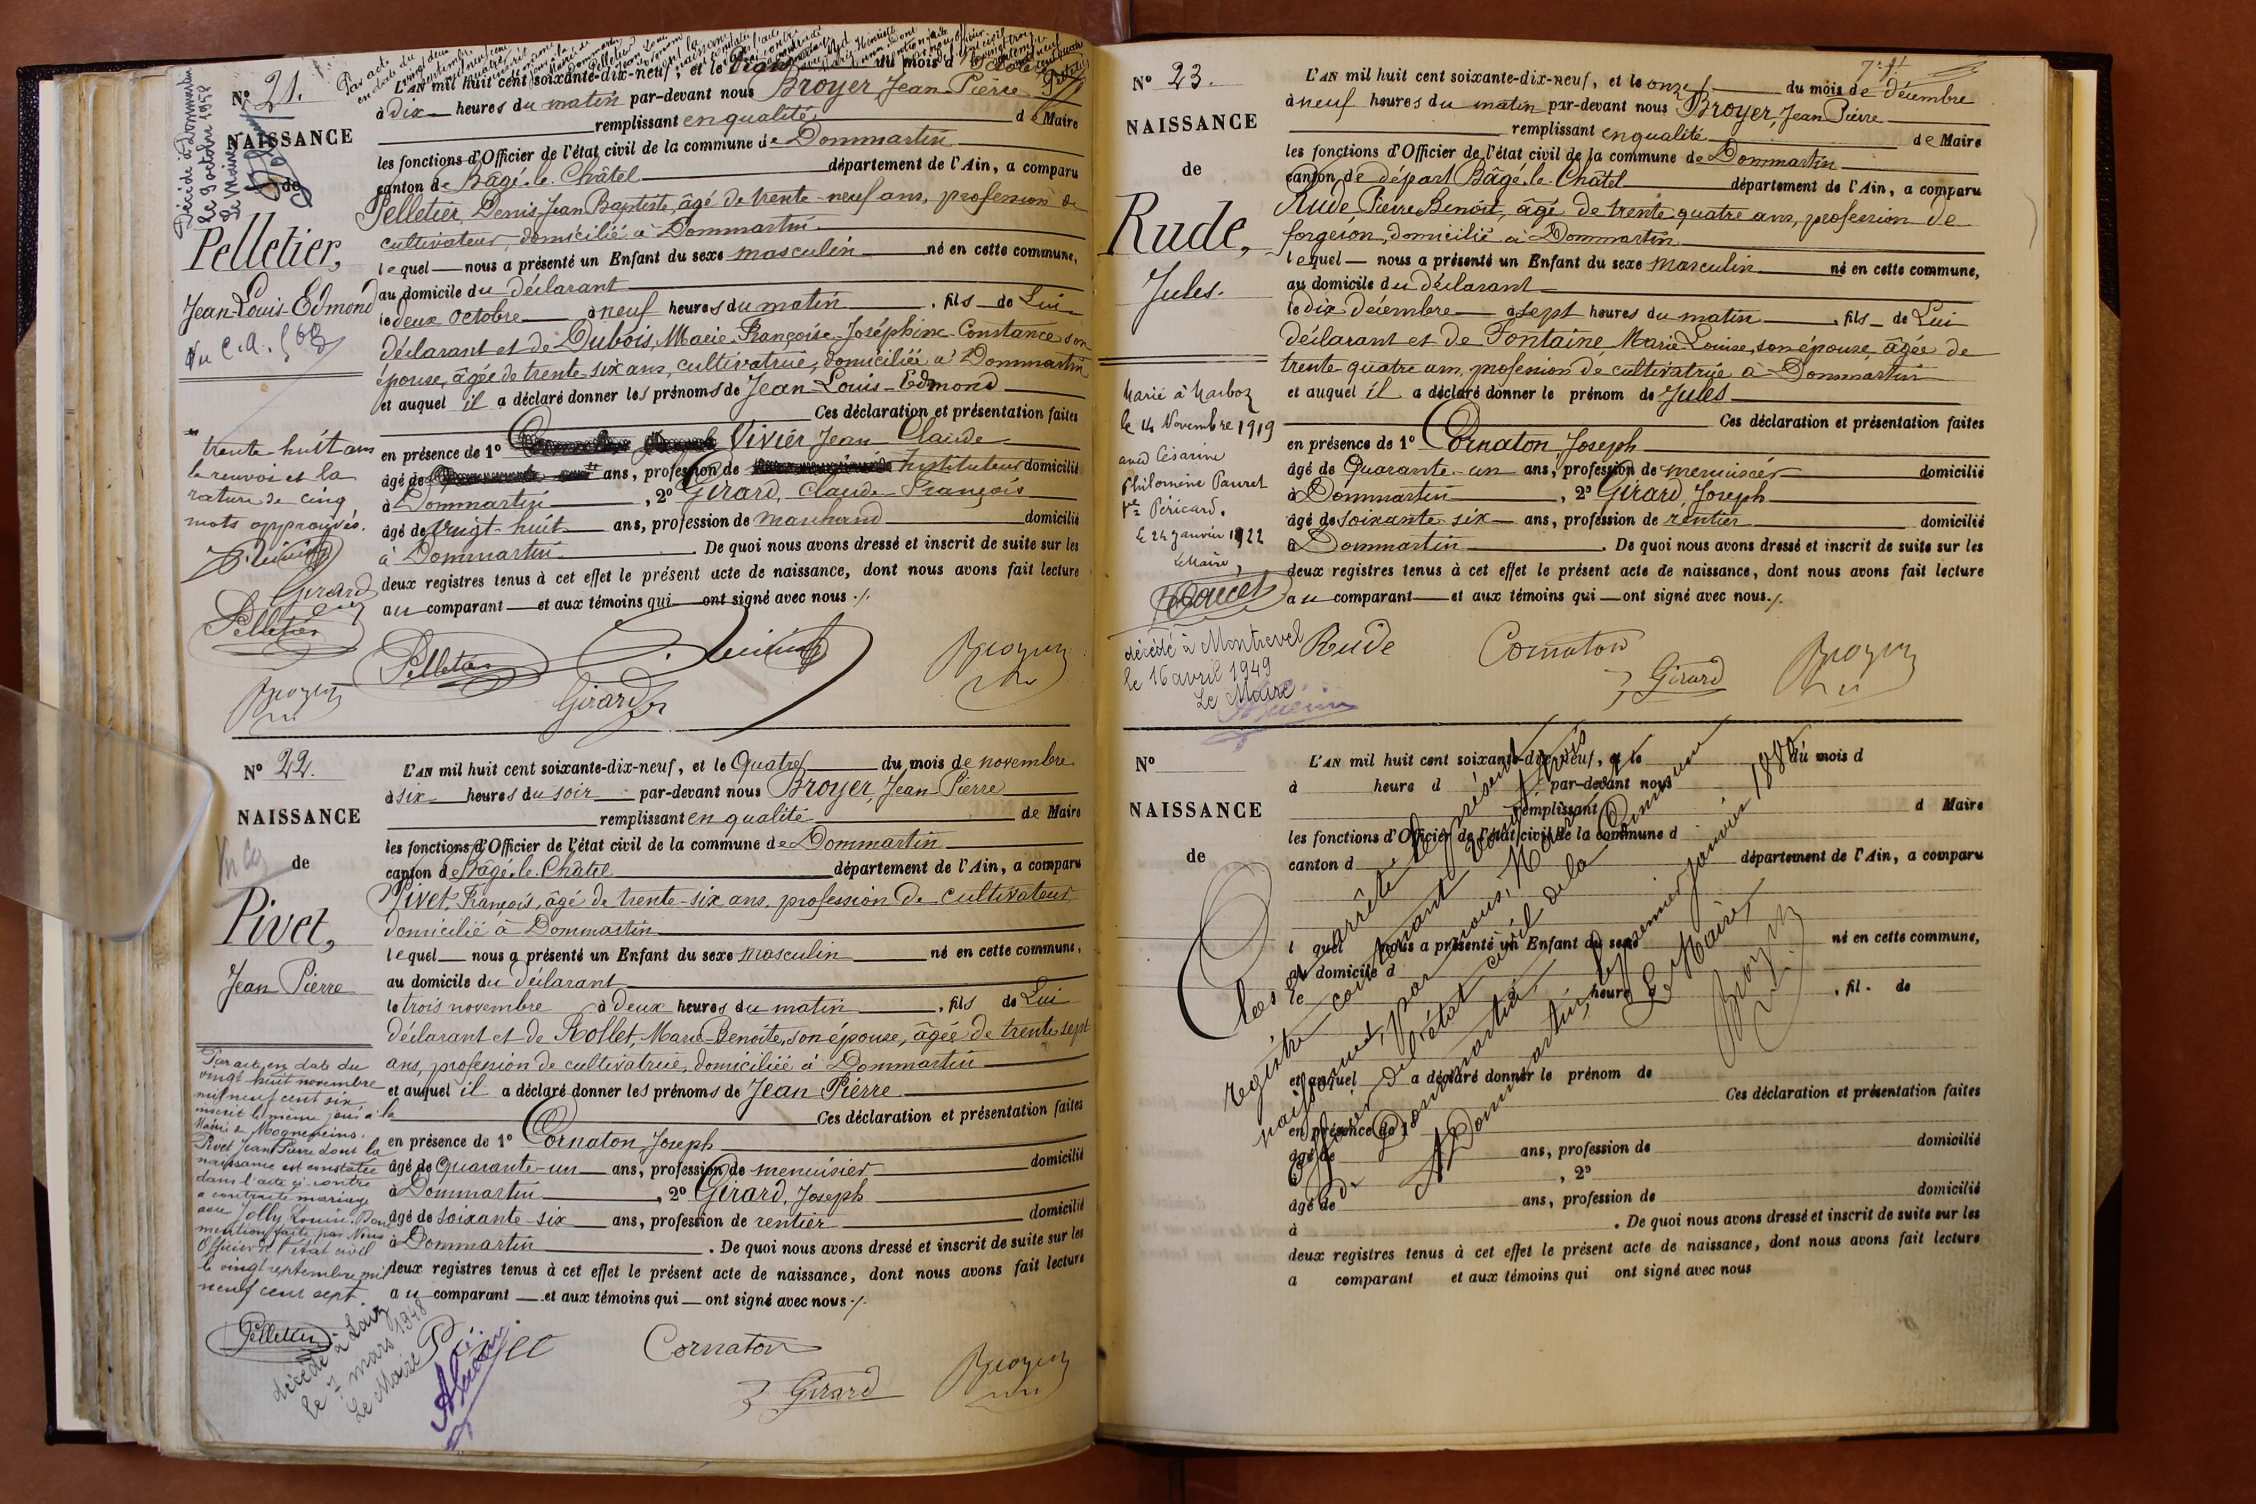 Décédé à Dommartin
le 9 octobre 1958
Le Maire
N° 21.
NAISSANCE
de
Pelletier,
Jean-Louis-Edmond
L'AN mil huit cent soixante-dix-neuf, et le du mois d
à dix heures du matin par-devant nous Broyer Jean Pierre
remplissant en qualité de Maire
les fonctions d'Officier de l'état civil de la commune de Dommartin
canton de Bâgé-le-Châtel département de l'Ain, a comparu
Pelletier, Denis Jean Baptiste, âgé de trente-neuf ans, profession de
cultivateur, domicilié à Dommartin
lequel nous a présenté un Enfant du sexe masculin né en cette commune,
au domicile du déclarant
le deux octobre à neuf heures du matin, fils de Lui
déclarant et de Dubois, Marie-Françoise-Joséphine-Constance son
épouse, âgée de trente-six ans, cultivatrice, domiciliée à Dommartin
et auquel il a déclaré donner les prénoms de Jean-Louis-Edmond
Ces déclaration et présentation faites
en présence de 1° Vivier Jean Claude
âgé de ans, profession de Instituteur domicilié
à Dommartin, 2° Girard, Claude-François
âgé de vingt-huit ans, profession de marchand domicilié
à Dommartin. De quoi nous avons dressé et inscrit de suite sur les
deux registres tenus à cet effet le présent acte de naissance, dont nous avons fait lecture
au comparant et aux témoins qui ont signé avec nous ./.
trente-huit ans
le renvoi et la
rature de cinq
mots approuvés.
Girard
Pelletier
Broyer
Pelletier
Girard
Broyer
N° 22.
NAISSANCE
de
Pivet,
Jean Pierre
L'AN mil huit cent soixante-dix-neuf, et le Quatre du mois de novembre
à six heures du soir par-devant nous Broyer, Jean Pierre
remplissant en qualité de Maire
les fonctions d'Officier de l'état civil de la commune de Dommartin
canton de Bâgé-le-Châtel département de l'Ain, a comparu
Pivet, François, âgé de trente-six ans, profession de cultivateur
domicilié à Dommartin
lequel nous a présenté un Enfant du sexe masculin né en cette commune,
au domicile du déclarant
le trois novembre à Deux heures du matin, fils de Lui
déclarant et de Rollet, Marie-Benoîte, son épouse, âgée de trente sept
ans, profession de cultivatrice, domiciliée à Dommartin
et auquel il a déclaré donner les prénoms de Jean Pierre
Ces déclaration et présentation faites
en présence de 1° Cornaton Joseph
âgé de Quarante-un ans, profession de menuisier domicilié
à Dommartin, 2° Girard, Joseph
âgé de soixante-six ans, profession de rentier domicilié
à Dommartin. De quoi nous avons dressé et inscrit de suite sur les
deux registres tenus à cet effet le présent acte de naissance, dont nous avons fait lecture
au comparant et aux témoins qui ont signé avec nous ./.
Par acte en date du
vingt huit novembre
mil neuf cent six
inscrit le même jour à la
Mairie de Mogneneins.
Pivet Jean Pierre dont la
naissance est constatée
dans l'acte ci-contre
a contracté mariage
avec Jolly Louise. Dont
mention faite par Nous
Officier de l'état civil
le vingt septembre mil
neuf cent sept
Pelletier
le 7 mars 1948
Le Maire
Pivet
Cornaton
Girard
Broyer
N° 23.
NAISSANCE
de
Rude,
Jules.
L'AN mil huit cent soixante-dix-neuf, et le onze du mois de décembre
à neuf heures du matin par-devant nous Broyer, Jean Pierre
remplissant en qualité de Maire
les fonctions d'Officier de l'état civil de la commune de Dommartin
canton de départ Bâgé-le-Châtel département de l'Ain, a comparu
Rude Pierre Benoît, âgé de trente quatre ans, profession de
forgeron, domicilié à Dommartin
lequel nous a présenté un Enfant du sexe masculin né en cette commune,
au domicile du déclarant
le dix décembre à sept heures du matin, fils de Lui
déclarant et de Fontaine Marie Louise, son épouse, âgée de
trente quatre ans, profession de cultivatrice à Dommartin
et auquel il a déclaré donner le prénom de Jules
Ces déclaration et présentation faites
en présence de 1° Cornaton Joseph
âgé de Quarante-un ans, profession de menuisier domicilié
à Dommartin, 2° Girard, Joseph
âgé de soixante six ans, profession de rentier domicilié
à Dommartin. De quoi nous avons dressé et inscrit de suite sur les
deux registres tenus à cet effet le présent acte de naissance, dont nous avons fait lecture
au comparant et aux témoins qui ont signé avec nous ./.
Marié à Marboz
le 14 Novembre 1919
avec Césarine
Philomène Pauret
Vve Péricard.
le 24 janvier 1922
Le Maire,
décédé à Montrevel
le 16 avril 1949
Le Maire
Rude
Cornaton
Girard
Broyer
N°
NAISSANCE
de
L'AN mil huit cent soixante-dix-neuf, et le du mois d
à heure d par-devant nous
remplissant d Maire
les fonctions d'Officier de l'état civil de la commune d
canton d département de l'Ain, a comparu
l quel nous a présenté un Enfant du sexe né en cette commune,
au domicile d
le heure d , fil. de
et auquel a déclaré donner le prénom de
Ces déclaration et présentation faites
en présence de 1°
âgé de ans, profession de domicilié
, 2°
âgé de ans, profession de domicilié
à . De quoi nous avons dressé et inscrit de suite sur les
deux registres tenus à cet effet le présent acte de naissance, dont nous avons fait lecture
a comparant et aux témoins qui ont signé avec nous
Clos et arrêté le présent
registre contenant vingt trois
naissances, par nous, Maire
Officier de l'état civil de la Commune
de Dommartin
A Dommartin, le premier janvier 1880
Le Maire,
Broyer